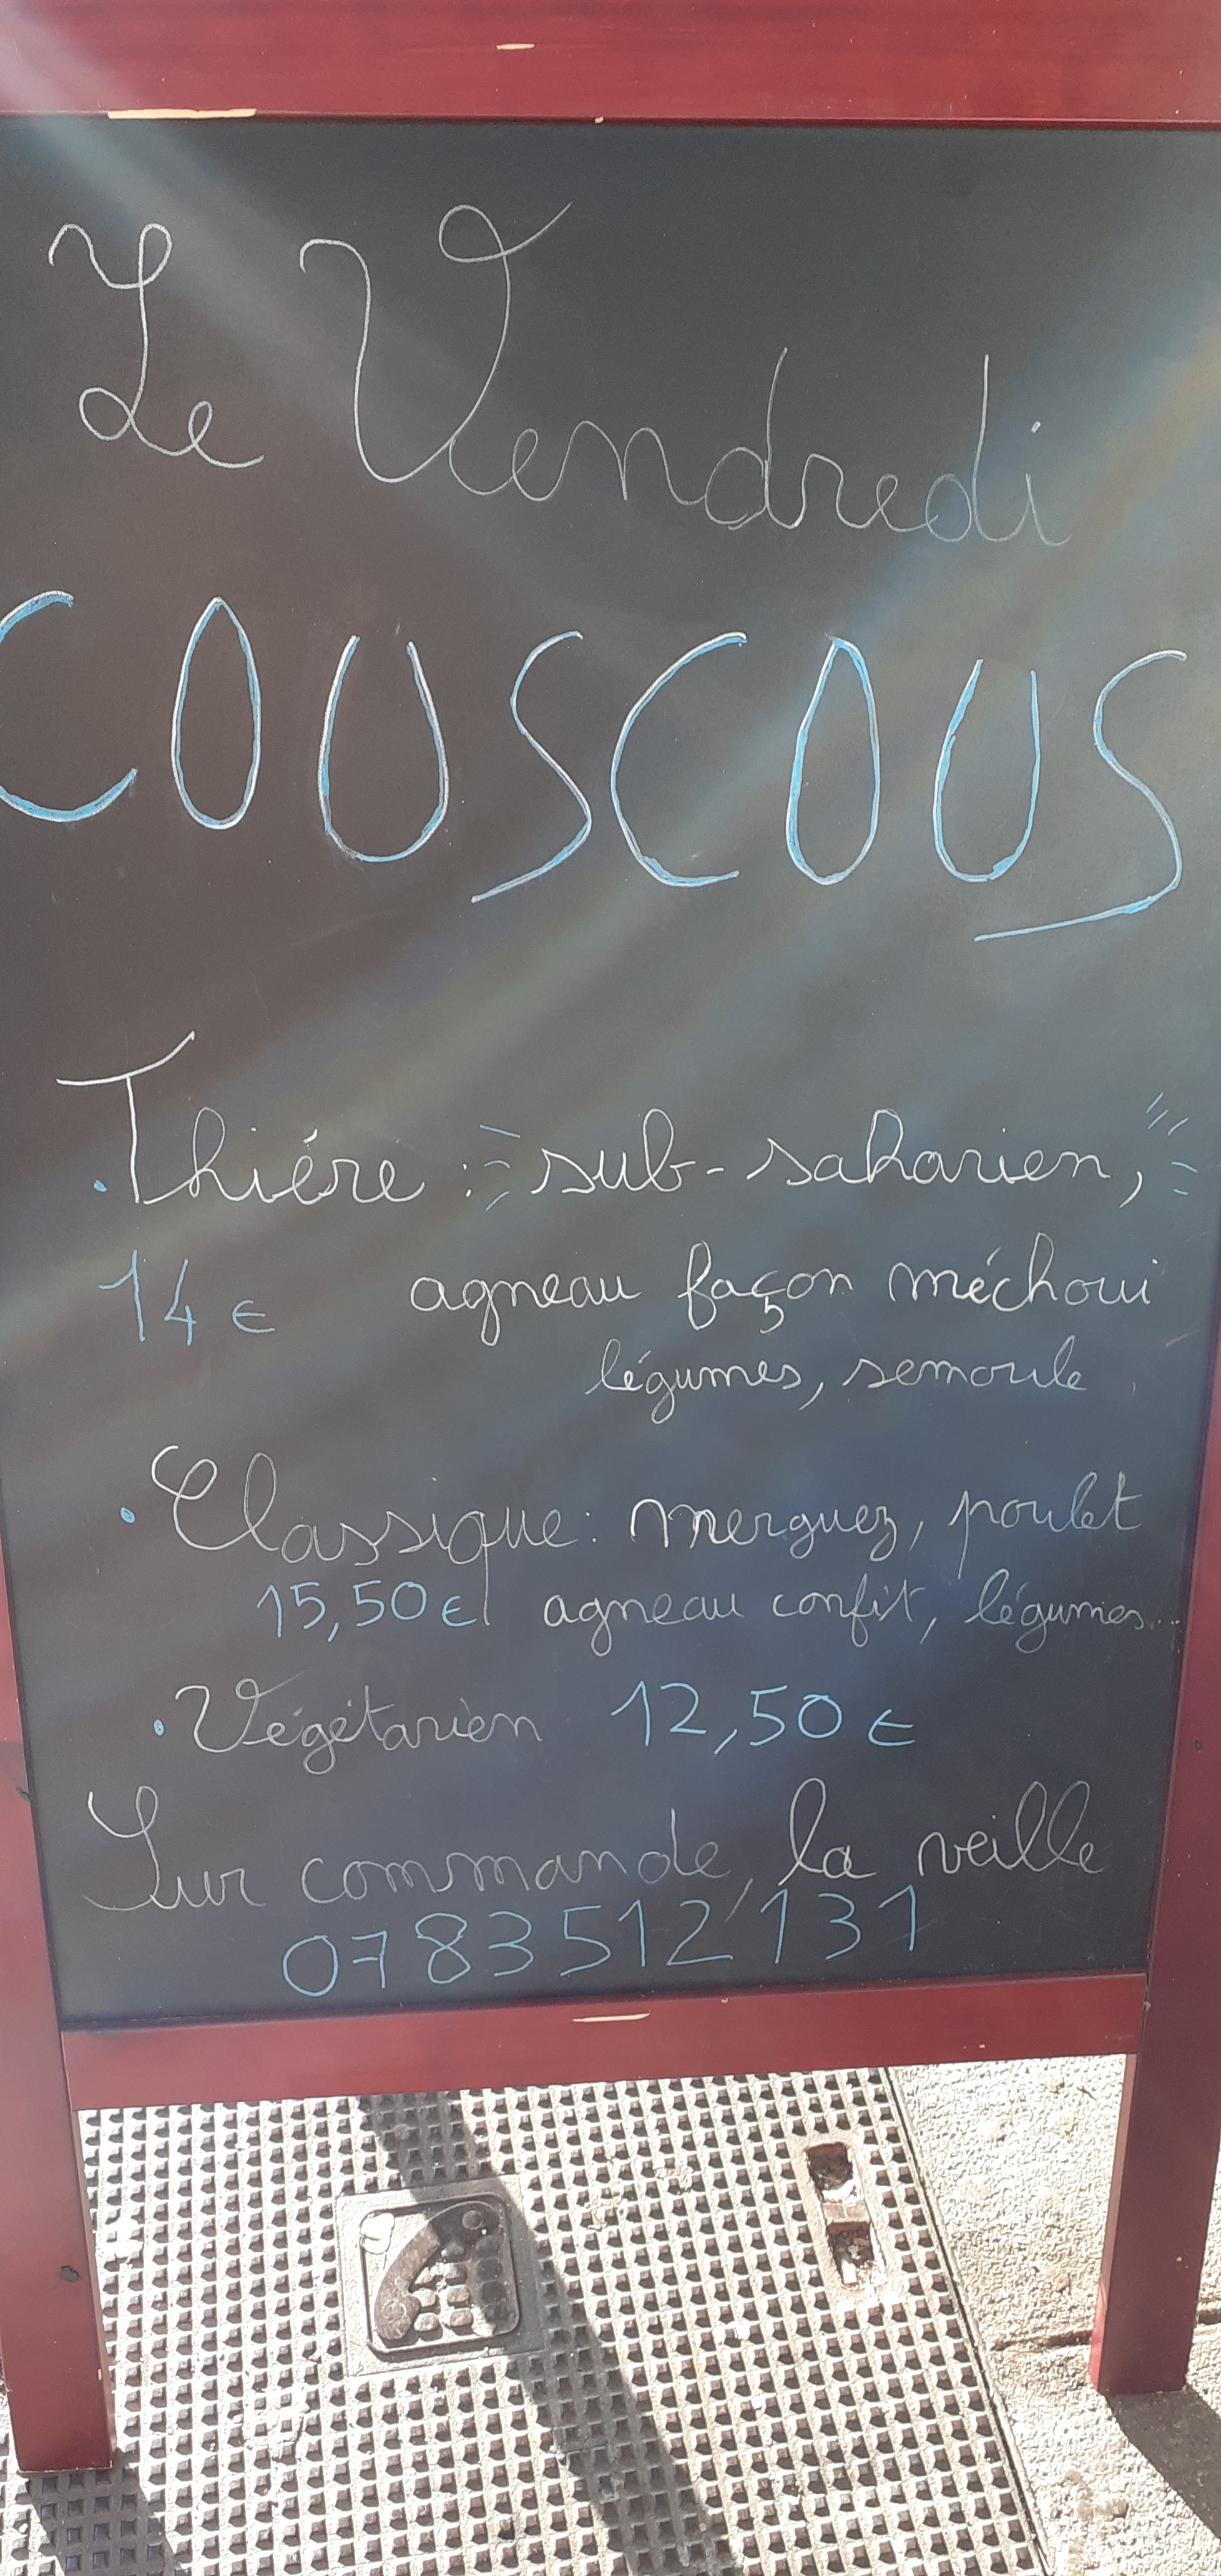 Le Vendredi
COUSCOUS
. Thiére : sub-saharien,
14€ agneau façon méchoui
légumes, semoule
. Classique : merguez, poulet
15,50€ agneau confit, légumes...
. Végétarien 12,50€
Sur commande, la veille
0783512131